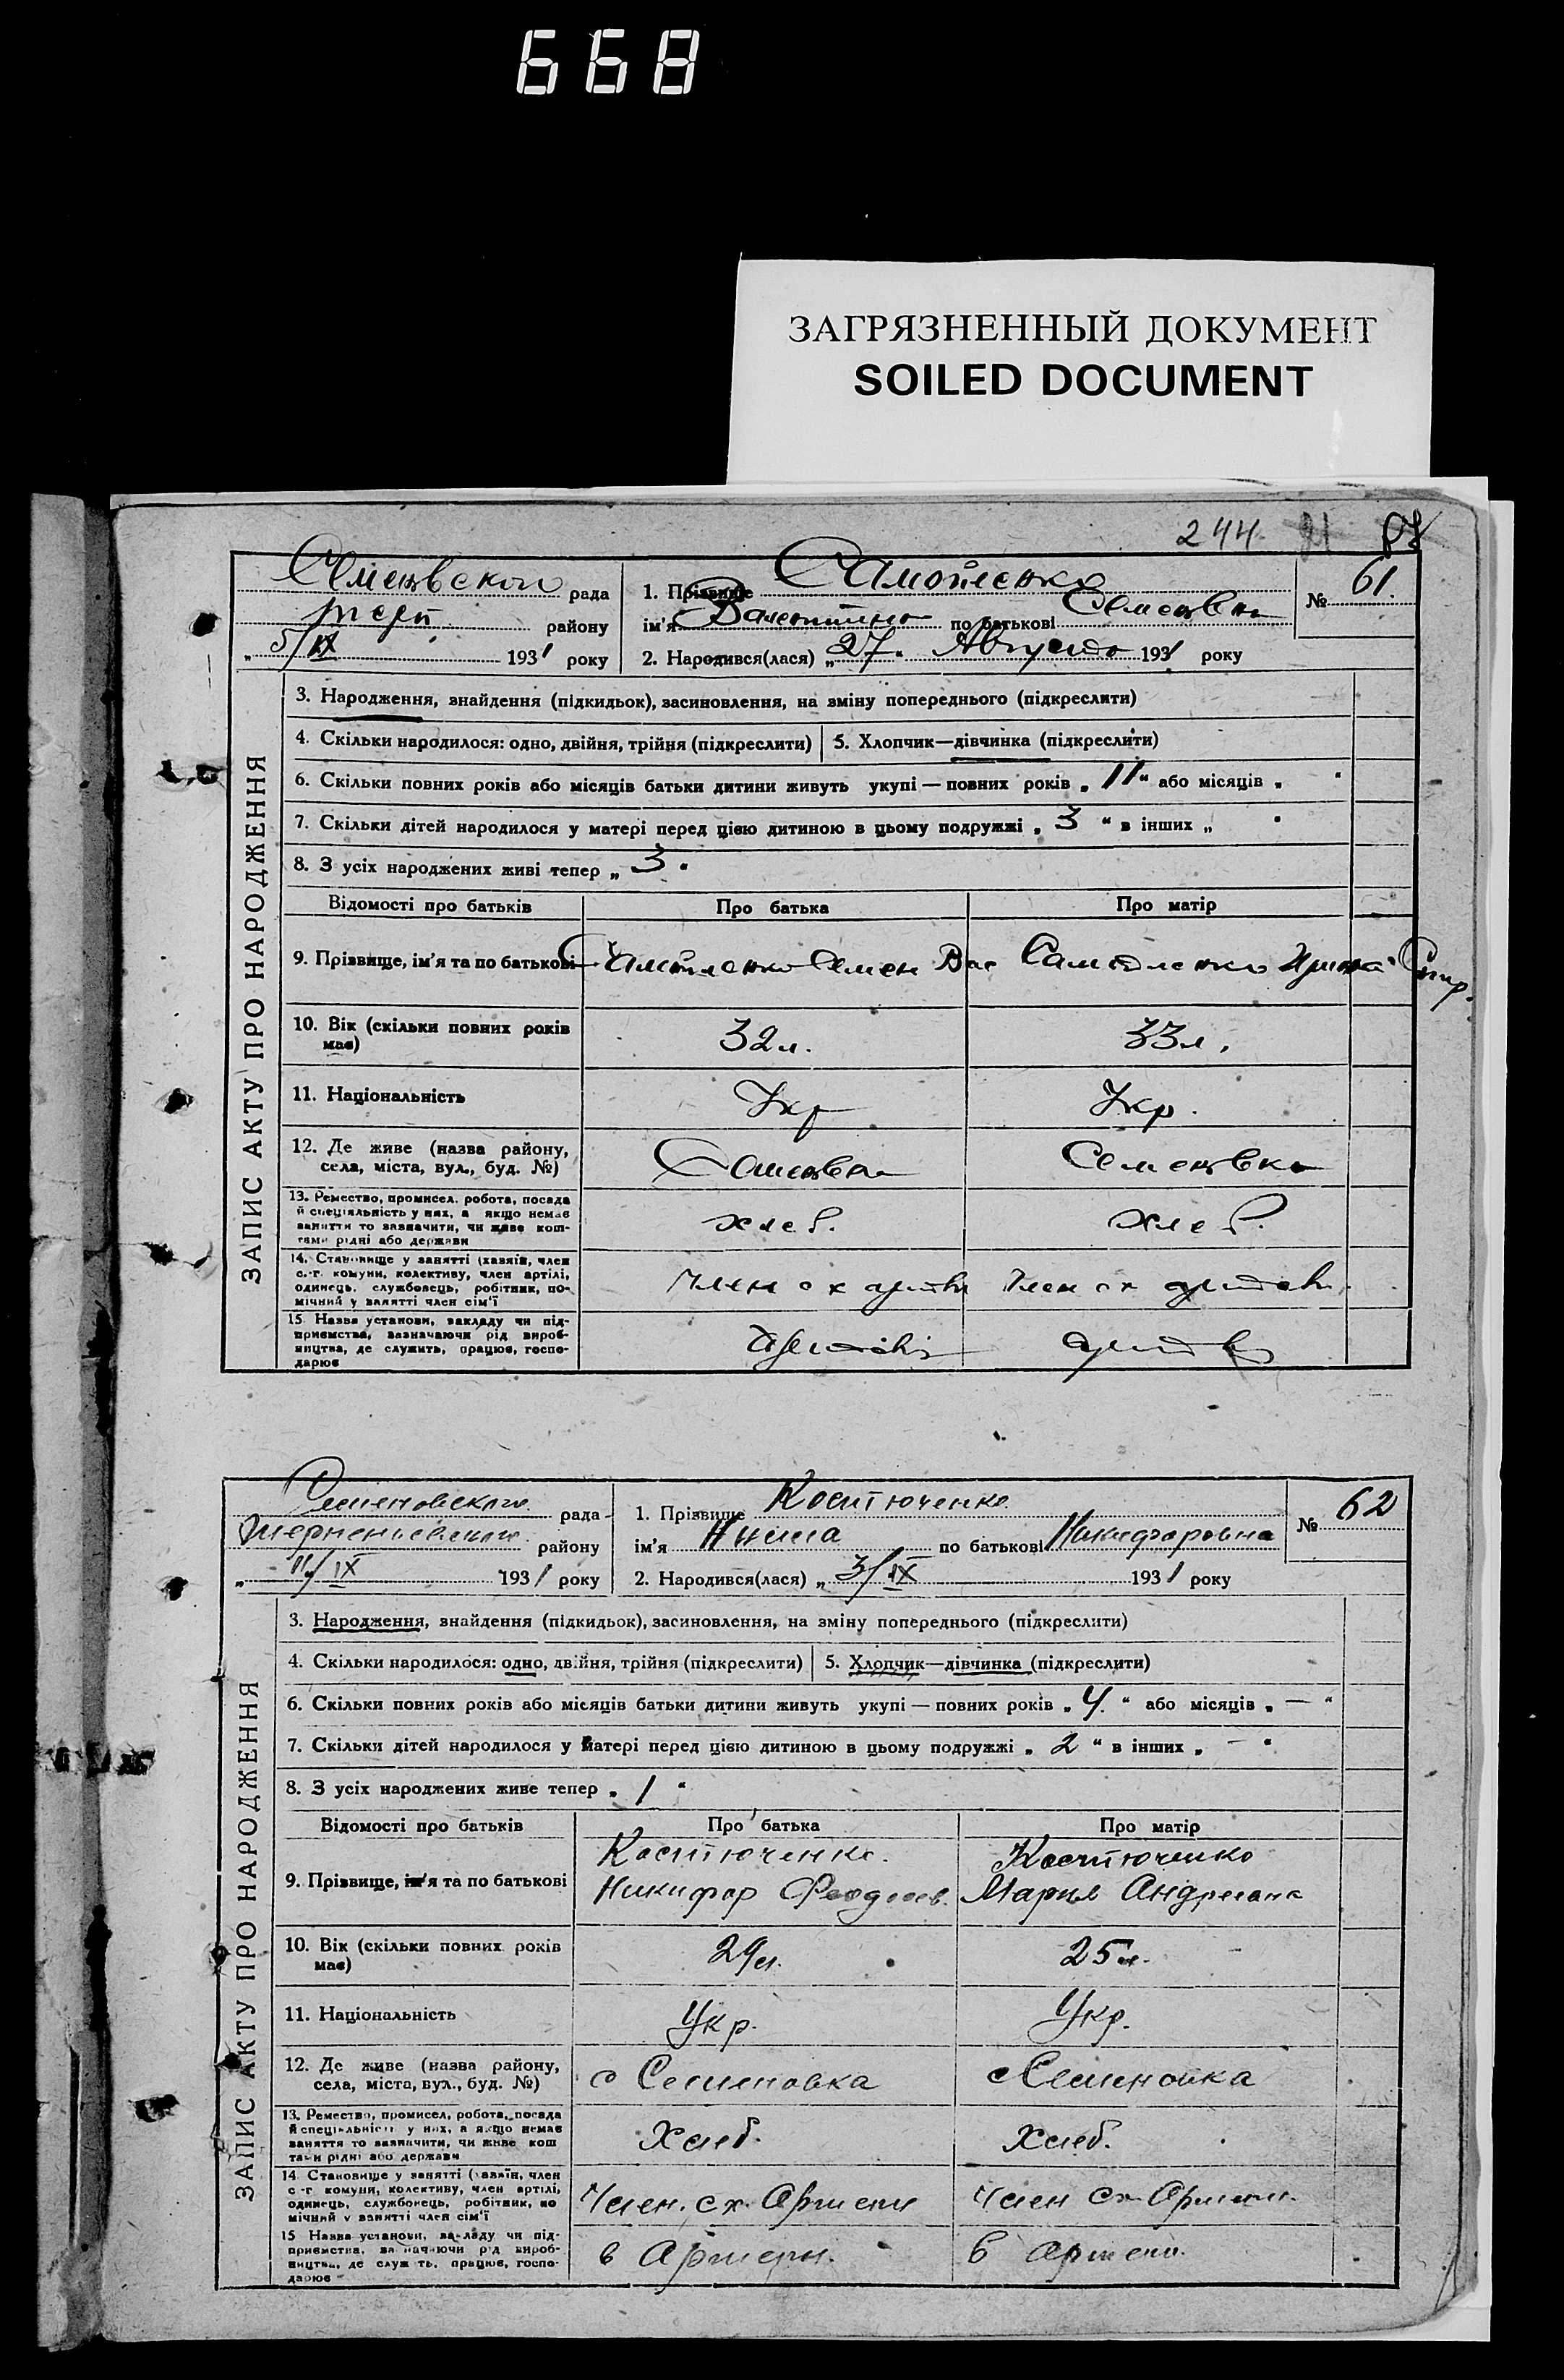 668
ЗАГРЯЗНЕННЫЙ ДОКУМЕНТ
SOILED DOCUMENT
244
ЗАПИС АКТУ ПРО НАРОДЖЕННЯ
рада
району
5/IX 1931 року
1. Прізвище Самойленко
ім'я Валентина по батькові
2. Народився(лася) „27“ Августа 1931 року
№ 61.
3. Народження, знайдення (підкидьок), засиновлення, на зміну попереднього (підкреслити)
4. Скільки народилося: одно, двійня, трійня (підкреслити)
5. Хлопчик—дівчинка (підкреслити)
6. Скільки повних років або місяців батьки дитини живуть укупі — повних років „11“ або місяців „ “
7. Скільки дітей народилося у матері перед цією дитиною в цьому подружжі „3“ в інших „ “
8. З усіх народжених живі тепер „3“
Відомості про батьків Про батька Про матір
9. Прізвище, ім'я та по батькові Самойленко Семен Вас Самойленко
10. Вік (скільки повних років має) 32 л. 33 л.
11. Національність Укр Укр.
12. Де живе (назва району, села, міста, вул., буд. №)
13. Ремество, промисел, робота, посада й спеціяльність у них, а якщо немає заняття то зазначити, чи живе коштами рідні або держави хлеб. хлеб.
14. Становище у занятті (хазяїн, член с.-г. комуни, колективу, член артілі, одинець, службовець, робітник, помічний у занятті член сім'ї Член с х Член с х
15. Назва установи, закладу чи підприємства, зазначаючи рід виробництва, де служить, працює, господарює
ЗАПИС АКТУ ПРО НАРОДЖЕННЯ
рада
району
11/IX 1931 року
1. Прізвище Костюченко
ім'я Нина по батькові Никифоровна
2. Народився(лася) „3/IX 1931 року
№ 62
3. Народження, знайдення (підкидьок), засиновлення, на зміну попереднього (підкреслити)
4. Скільки народилося: одно, двійня, трійня (підкреслити)
5. Хлопчик—дівчинка (підкреслити)
6. Скільки повних років або місяців батьки дитини живуть укупі — повних років „4“ або місяців „—“
7. Скільки дітей народилося у матері перед цією дитиною в цьому подружжі „2“ в інших „—“
8. З усіх народжених живе тепер „1“
Відомості про батьків Про батька Про матір
Костюченко. Костюченко
9. Прізвище, ім'я та по батькові Никифор Мария
10. Вік (скільки повних років має) 29 л. 25 л.
11. Національність Укр. Укр.
12. Де живе (назва району, села, міста, вул., буд. №) с Семеновка с Семеновка
13. Ремество, промисел, робота, посада й спеціяльність у них, а якщо немає заняття то зазначити, чи живе коштами рідні або держави Хлеб. Хлеб.
14. Становище у занятті (хазяїн, член с.-г. комуни, колективу, член артілі, одинець, службовець, робітник, помічний у занятті член сім'ї Член. с.х. Артели Член с.х. Артели.
15. Назва установи, закладу чи підприємства, зазначаючи рід виробництва, де служить, працює, господарює в Артели. в Артели.